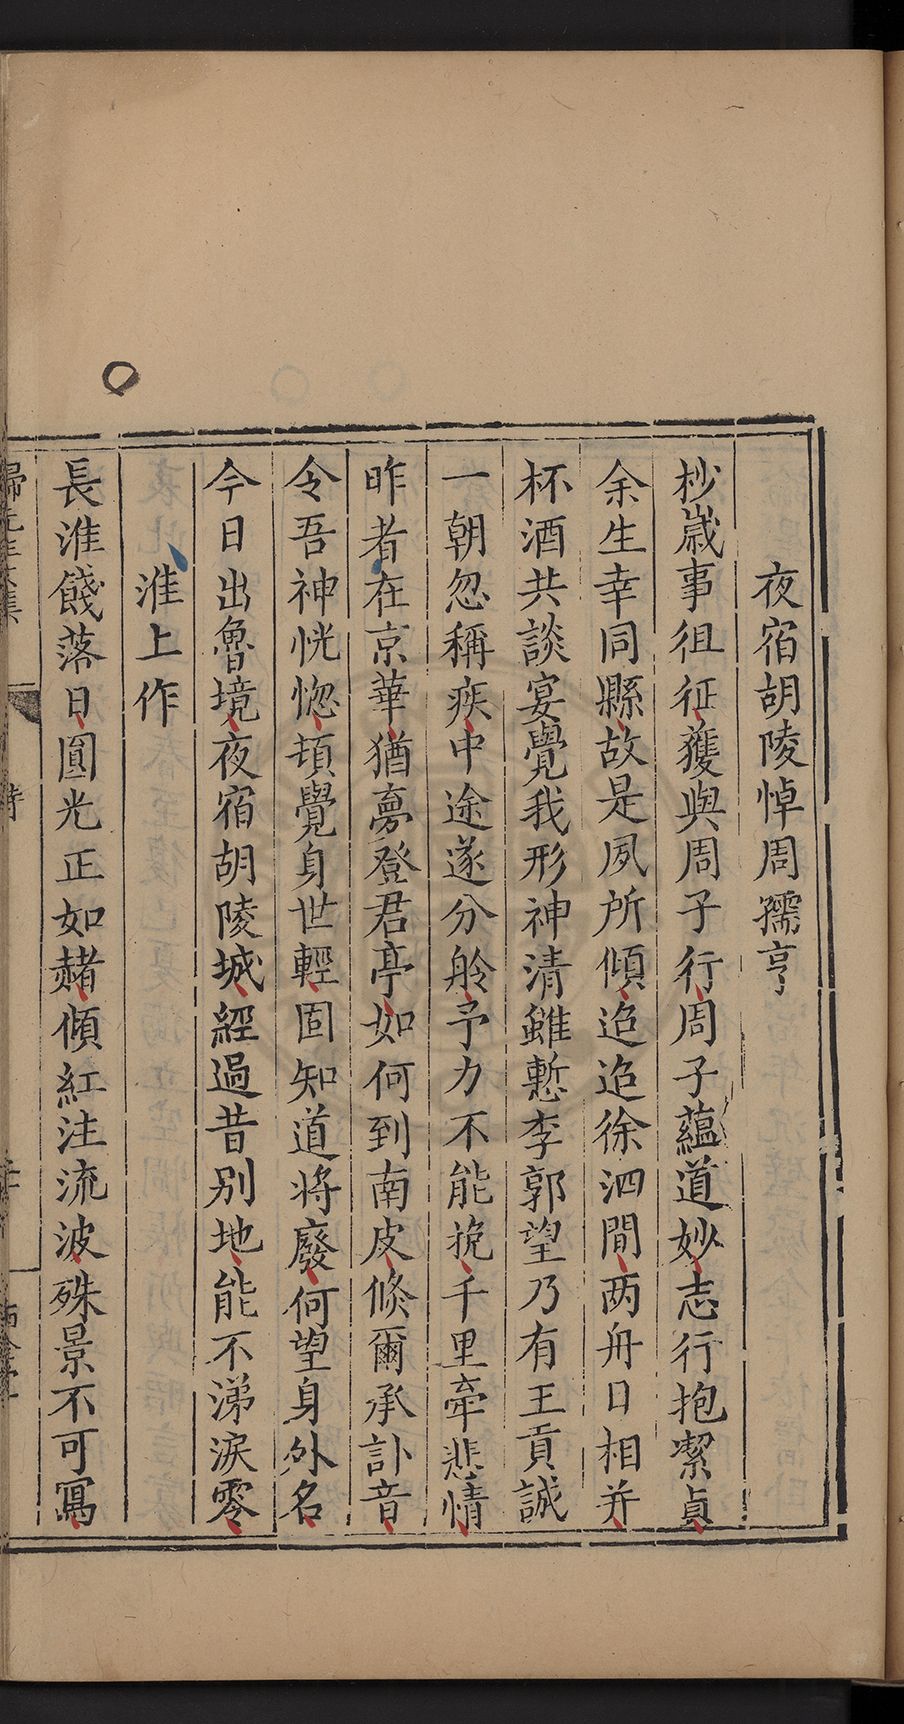 夜宿胡陵悼周孺亨
杪歲事徂征獲與周子行周子蘊道妙志行抱潔貞
余生幸同縣故是夙所傾迢迢徐泗間两舟日相并
杯酒共談宴覺我形神清雖慙李郭望乃有王貢誠
一朝忽稱疾中途遂分舲予力不能挽千里牽悲情
昨者在京華猶夢登君亭如何到南皮倐爾承訃音
令吾神恍惚頓覺身世輕固知道將廢何望身外名
今日出魯境夜宿胡陵城經過昔别地能不涕淚零
淮上作
長淮餞落日圓光正如赭傾紅注流波殊景不可寫